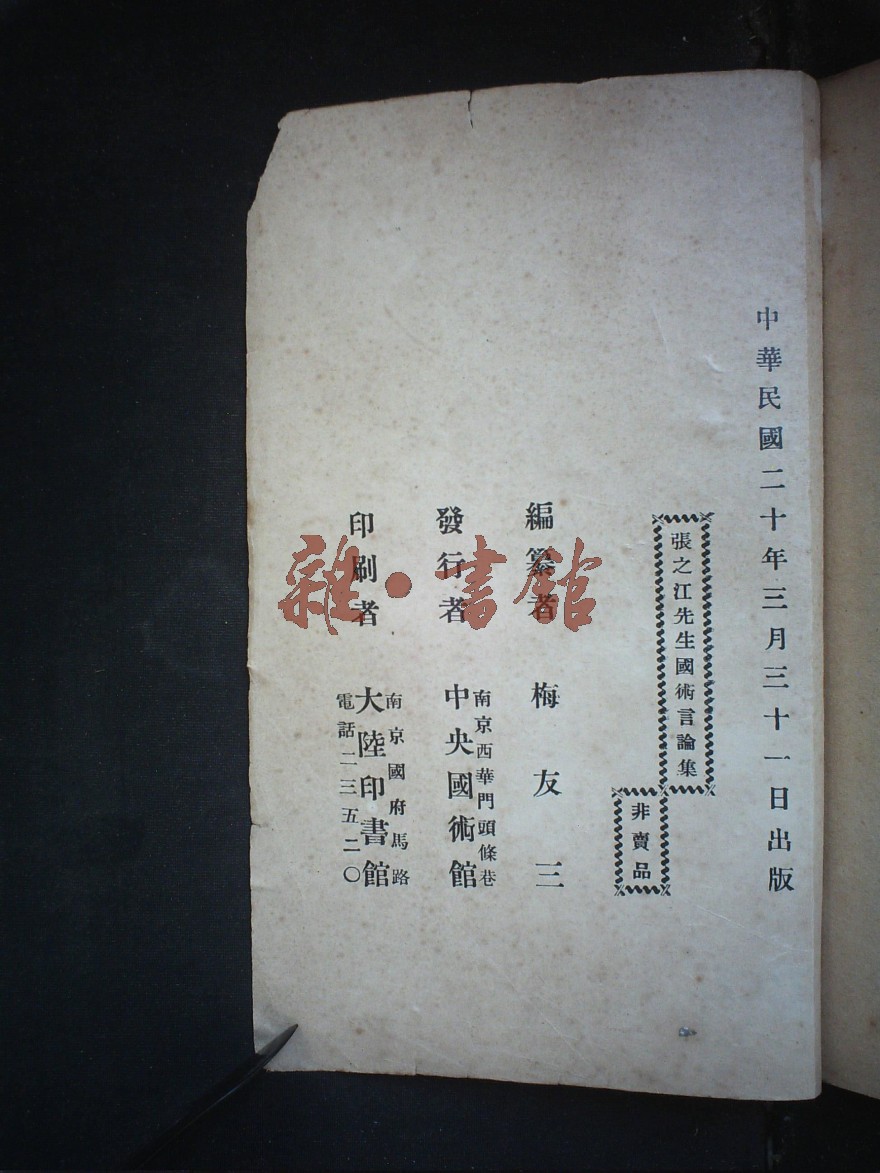 中華民國二十年三月三十一日出版
張之江先生國術言論集
非賣品
編纂者 梅友三
南京西華門頭條巷
發行者 中央國術館
南京國府馬路
印刷者 大陸印書館
電話二三五二〇
雜·書館